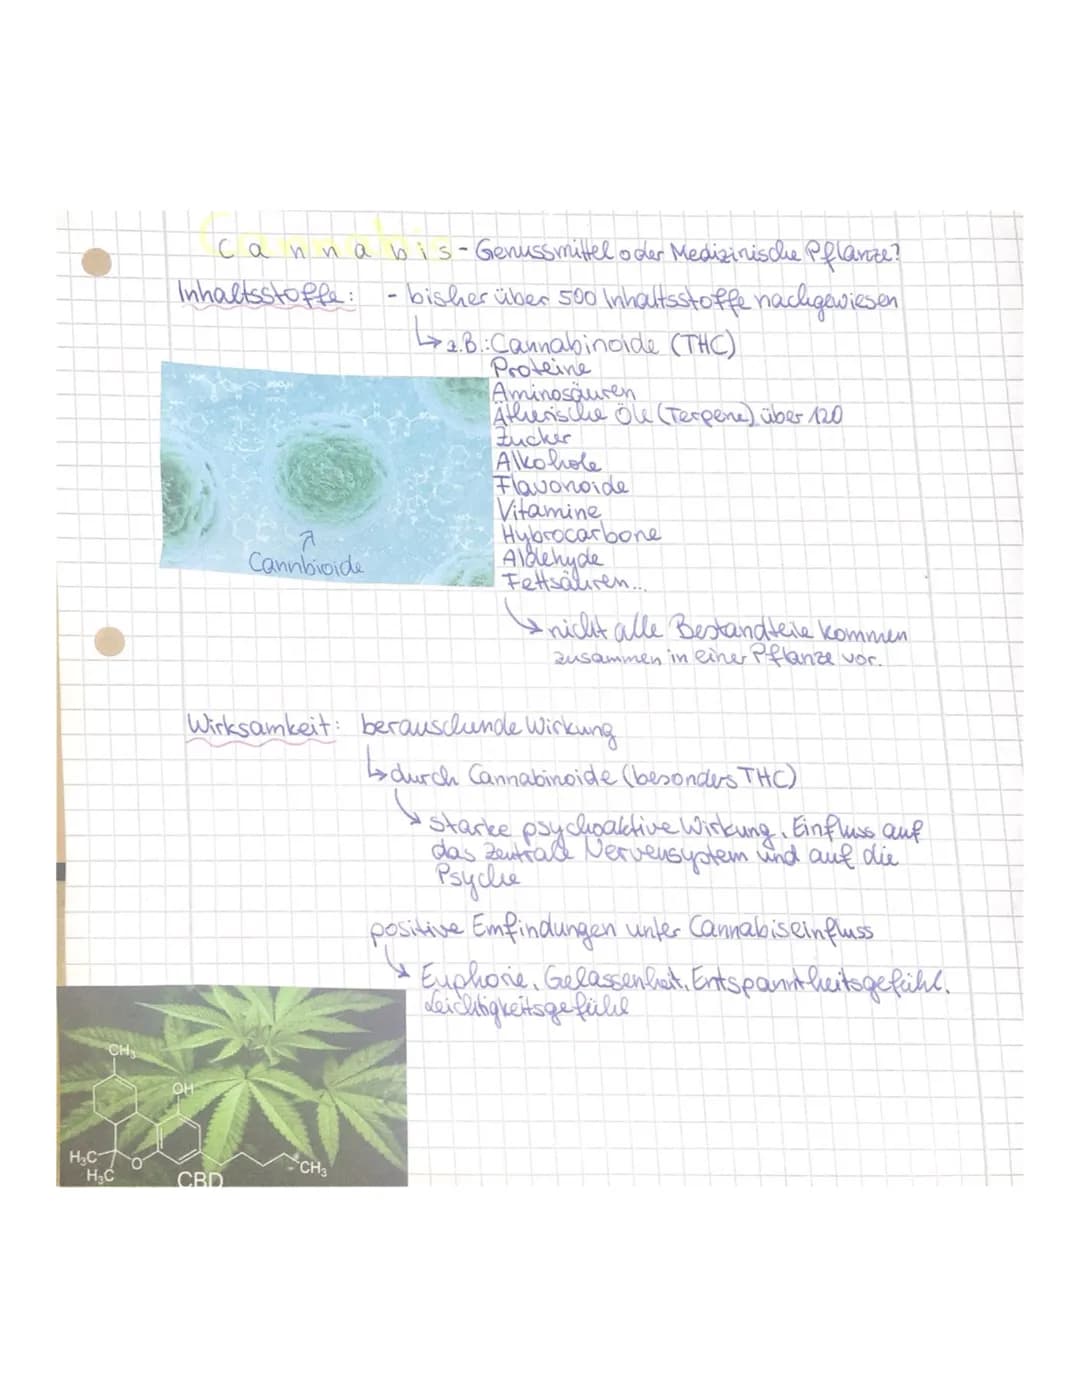 Cannabis - Genussmittel oder Medizinische Pflanze?
Inhaltsstoffe: - bisher über 500 Inhaltsstoffe nachgewiesen
↳ z.B.: Cannabinoide (THC)
Proteine
Aminosäuren
Ätherische Öle (Terpene) über 120
Zucker
Alkohole
Flavonoide
Vitamine
Hybrocarbone
Aldehyde
Fettsäuren...
Cannbioide
↳ nicht alle Bestandteile kommen
zusammen in einer Pflanze vor.
Wirksamkeit: berauschende Wirkung
↳ durch Cannabinoide (besonders THC)
↳ starke psychoaktive Wirkung, Einfluss auf
das Zentrale Nervensystem und auf die
Psyche
positive Emfindungen unter Cannabiseinfluss
↳ Euphorie, Gelassenheit, Entspanntheitsgefühl,
Leichtigkeitsgefühl
CH3
OH
H3C
O
CH3
H3C
CBD